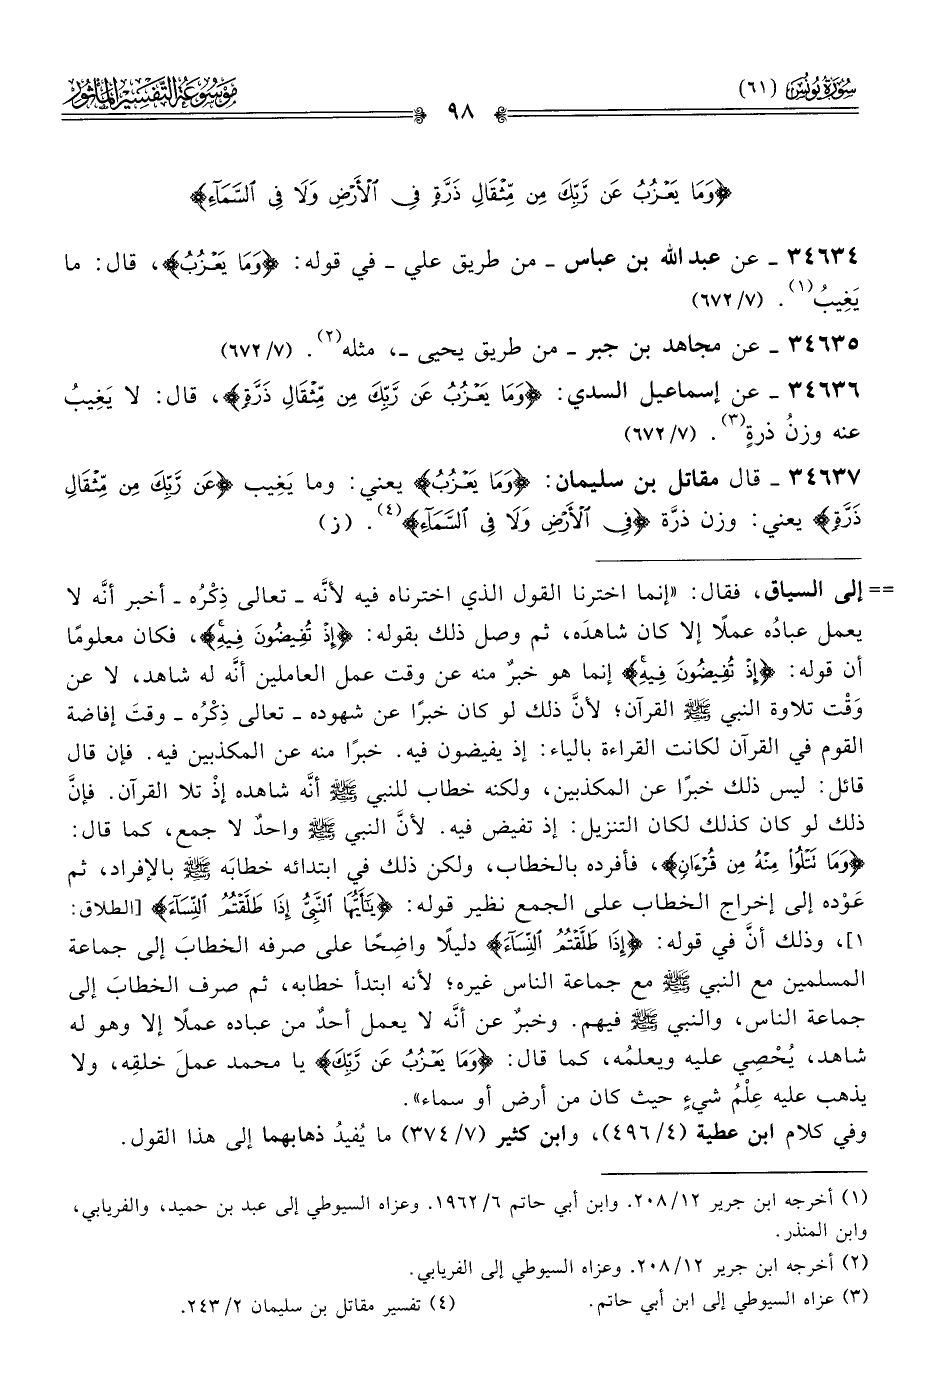 سُورَةُ يُونُسَ (٦١)
٩٨
مَوْسُوعَةُ التَّفْسِيرِ المَأْثُورِ
﴿وَمَا يَعْزُبُ عَن رَّبِّكَ مِن مِّثْقَالِ ذَرَّةٍ فِى ٱلْأَرْضِ وَلَا فِى ٱلسَّمَآءِ﴾
٣٤٦٣٤ ـ عن عبد الله بن عباس ـ من طريق علي ـ في قوله: ﴿وَمَا يَعْزُبُ﴾، قال: ما
يَغِيبُ(١). (٦٧٢/٧)
٣٤٦٣٥ ـ عن مجاهد بن جبر ـ من طريق يحيى ـ، مثله(٢). (٦٧٢/٧)
٣٤٦٣٦ ـ عن إسماعيل السدي: ﴿وَمَا يَعْزُبُ عَن رَّبِّكَ مِن مِّثْقَالِ ذَرَّةٍ﴾، قال: لا يَغِيبُ
عنه وزنُ ذرةٍ(٣). (٦٧٢/٧)
٣٤٦٣٧ ـ قال مقاتل بن سليمان: ﴿وَمَا يَعْزُبُ﴾ يعني: وما يَغِيب ﴿عَن رَّبِّكَ مِن مِّثْقَالِ
ذَرَّةٍ﴾ يعني: وزن ذرَّة ﴿فِى ٱلْأَرْضِ وَلَا فِى ٱلسَّمَآءِ﴾(٤). (ز)
== إلى السياق، فقال: «إنما اخترنا القول الذي اخترناه فيه لأنَّه ـ تعالى ذِكْرُه ـ أخبر أنَّه لا
يعمل عبادُه عملًا إلا كان شاهدَه، ثم وصل ذلك بقوله: ﴿إِذْ تُفِيضُونَ فِيهِۚ﴾، فكان معلومًا
أن قوله: ﴿إِذْ تُفِيضُونَ فِيهِۚ﴾ إنما هو خبرٌ منه عن وقت عمل العاملين أنَّه له شاهد، لا عن
وَقْت تلاوة النبي ﷺ القرآن؛ لأنَّ ذلك لو كان خبرًا عن شهوده ـ تعالى ذِكْرُه ـ وقتَ إفاضة
القوم في القرآن لكانت القراءة بالياء: إذ يفيضون فيه. خبرًا منه عن المكذبين فيه. فإن قال
قائل: ليس ذلك خبرًا عن المكذبين، ولكنه خطاب للنبي ﷺ أنَّه شاهده إذْ تلا القرآن. فإنَّ
ذلك لو كان كذلك لكان التنزيل: إذ تفيض فيه. لأنَّ النبي ﷺ واحدٌ لا جمع، كما قال:
﴿وَمَا تَتْلُوا۟ مِنْهُ مِن قُرْءَانٍ﴾، فأفرده بالخطاب، ولكن ذلك في ابتدائه خطابَه ﷺ بالإفراد، ثم
عَوْده إلى إخراج الخطاب على الجمع نظير قوله: ﴿يَٰٓأَيُّهَا ٱلنَّبِىُّ إِذَا طَلَّقْتُمُ ٱلنِّسَآءَ﴾ [الطلاق:
١]، وذلك أنَّ في قوله: ﴿إِذَا طَلَّقْتُمُ ٱلنِّسَآءَ﴾ دليلًا واضحًا على صرفه الخطابَ إلى جماعة
المسلمين مع النبي ﷺ مع جماعة الناس غيره؛ لأنه ابتدأ خطابه، ثم صرف الخطابَ إلى
جماعة الناس، والنبي ﷺ فيهم. وخبرٌ عن أنَّه لا يعمل أحدٌ من عباده عملًا إلا وهو له
شاهد، يُحْصِي عليه ويعلمُه، كما قال: ﴿وَمَا يَعْزُبُ عَن رَّبِّكَ﴾ يا محمد عملَ خلقِه، ولا
يذهب عليه عِلْمُ شيءٍ حيث كان من أرض أو سماء».
وفي كلام ابن عطية (٤٩٦/٤)، وابن كثير (٣٧٤/٧) ما يُفيدُ ذهابهما إلى هذا القول.
(١) أخرجه ابن جرير ٢٠٨/١٢. وابن أبي حاتم ١٩٦٢/٦. وعزاه السيوطي إلى عبد بن حميد، والفريابي،
وابن المنذر.
(٢) أخرجه ابن جرير ٢٠٨/١٢. وعزاه السيوطي إلى الفريابي.
(٣) عزاه السيوطي إلى ابن أبي حاتم. (٤) تفسير مقاتل بن سليمان ٢٤٣/٢.